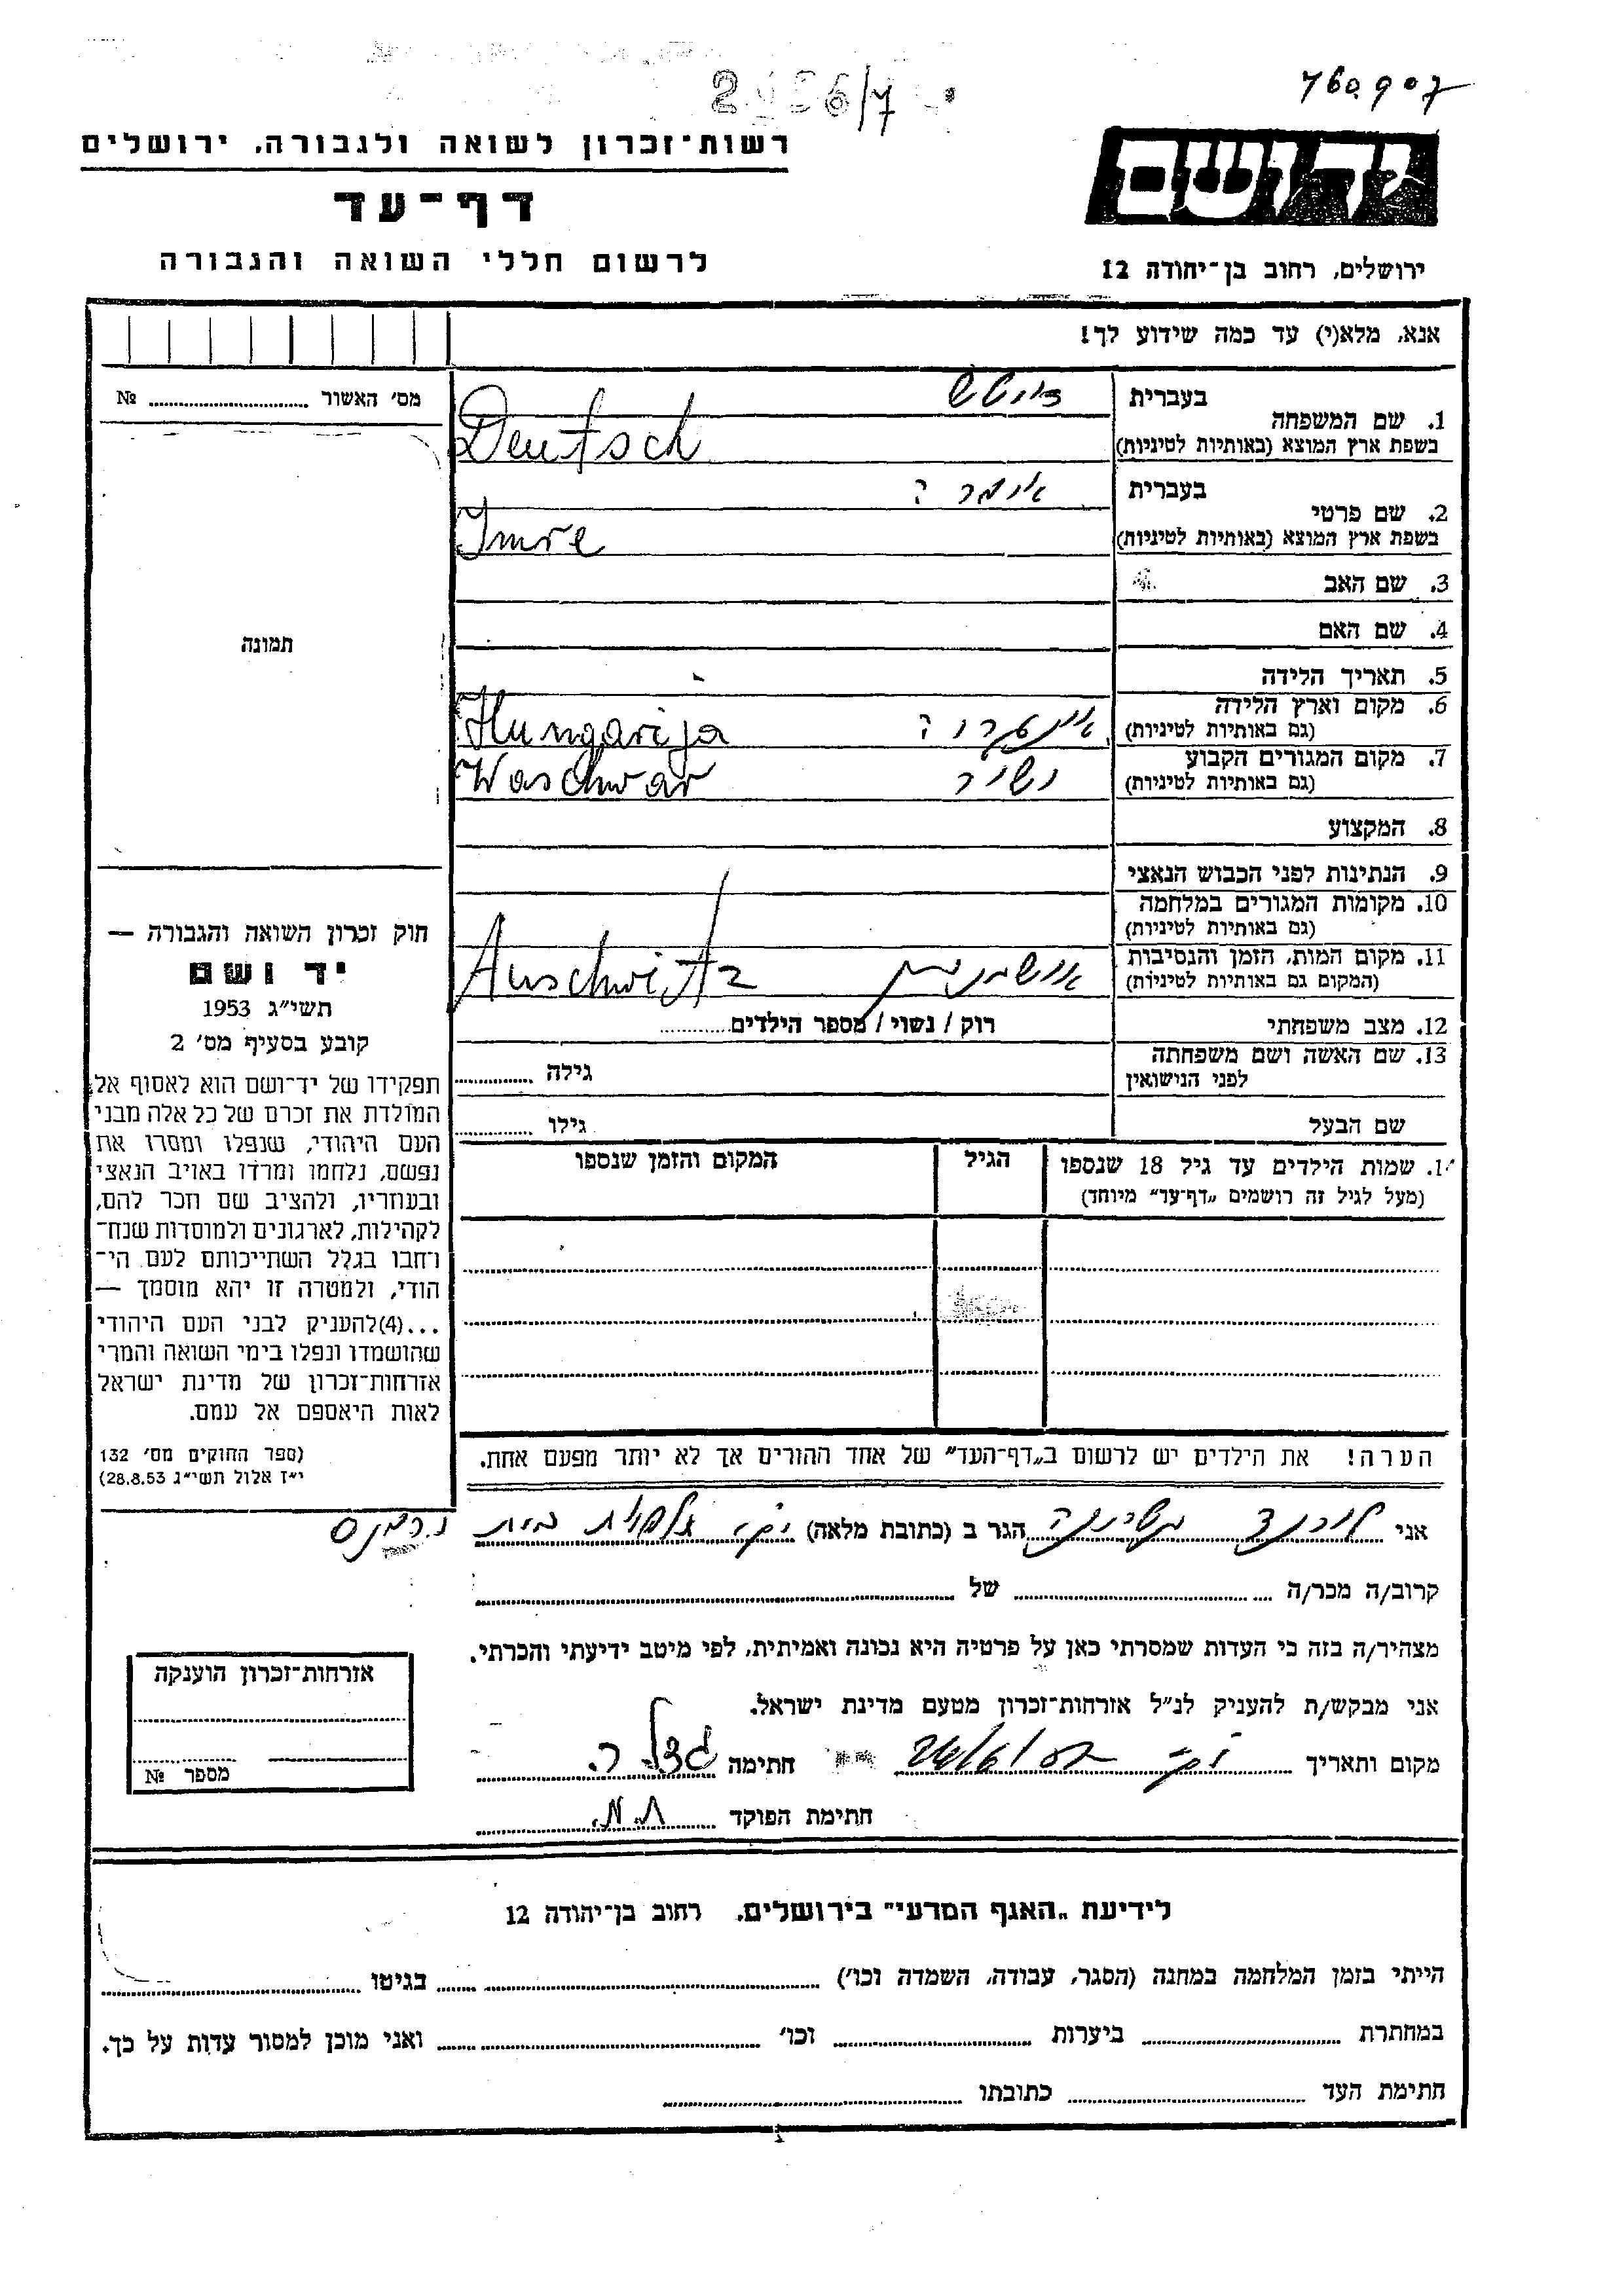 760907
רשות־זכרון לשואה ולגבורה, ירושלים
יד ושם
דף־עד
לרשום חללי השואה והגבורה
ירושלים, רחוב בן־יהודה 12
אנא, מלא(י) עד כמה שידוע לך!
מס' האשור № 
1. שם המשפחה
בעברית דויטש
בשפת ארץ המוצא (באותיות לטיניות) Deutsch
2. שם פרטי
בעברית אימרה
בשפת ארץ המוצא (באותיות לטיניות) Imre
3. שם האב
4. שם האם
תמונה
5. תאריך הלידה
6. מקום וארץ הלידה
(גם באותיות לטיניות) Hungarija
7. מקום המגורים הקבוע
(גם באותיות לטיניות) Waschwar
8. המקצוע
9. הנתינות לפני הכבוש הנאצי
10. מקומות המגורים במלחמה
(גם באותיות לטיניות)
11. מקום המות, הזמן והנסיבות
(המקום גם באותיות לטיניות) אושויץ Auschwitz
12. מצב משפחתי רוק / נשוי / מספר הילדים
13. שם האשה ושם משפחתה
לפני הנישואין גילה
שם הבעל גילו
14. שמות הילדים עד גיל 18 שנספו הגיל המקום והזמן שנספו
(מעל לגיל זה רושמים „דף־עד" מיוחד)
הערה! את הילדים יש לרשום ב„דף־העד" של אחד ההורים אך לא יותר מפעם אחת.
חוק זכרון השואה והגבורה —
יד ושם
תשי"ג 1953
קובע בסעיף מס' 2
תפקידו של יד־ושם הוא לאסוף אל
המולדת את זכרם של כל אלה מבני
העם היהודי, שנפלו ומסרו את
נפשם, נלחמו ומרדו באויב הנאצי
ובעוזריו, ולהציב שם וזכר להם,
לקהילות, לארגונים ולמוסדות שנח־
רבו בגלל השתייכותם לעם הי־
הודי, ולמטרה זו יהא מוסמך —
...(4)להעניק לבני העם היהודי
שהושמדו ונפלו בימי השואה והמרי
אזרחות־זכרון של מדינת ישראל
לאות היאספם אל עמם.
(ספר החוקים מס' 132
י"ז אלול תשי"ג 28.8.53)
אני הגר ב (כתובת מלאה)
קרוב/ה מכר/ה של
מצהיר/ה בזה כי העדות שמסרתי כאן על פרטיה היא נכונה ואמיתית, לפי מיטב ידיעתי והכרתי.
אני מבקש/ת להעניק לנ"ל אזרחות־זכרון מטעם מדינת ישראל.
מקום ותאריך חתימה
חתימת הפוקד
אזרחות־זכרון הוענקה
מספר №
לידיעת „האגף המדעי" בירושלים, רחוב בן־יהודה 12
הייתי בזמן המלחמה במחנה (הסגר, עבודה, השמדה וכו') בגיטו
במחתרת ביערות וכו' ואני מוכן למסור עדות על כך.
חתימת העד כתובתו